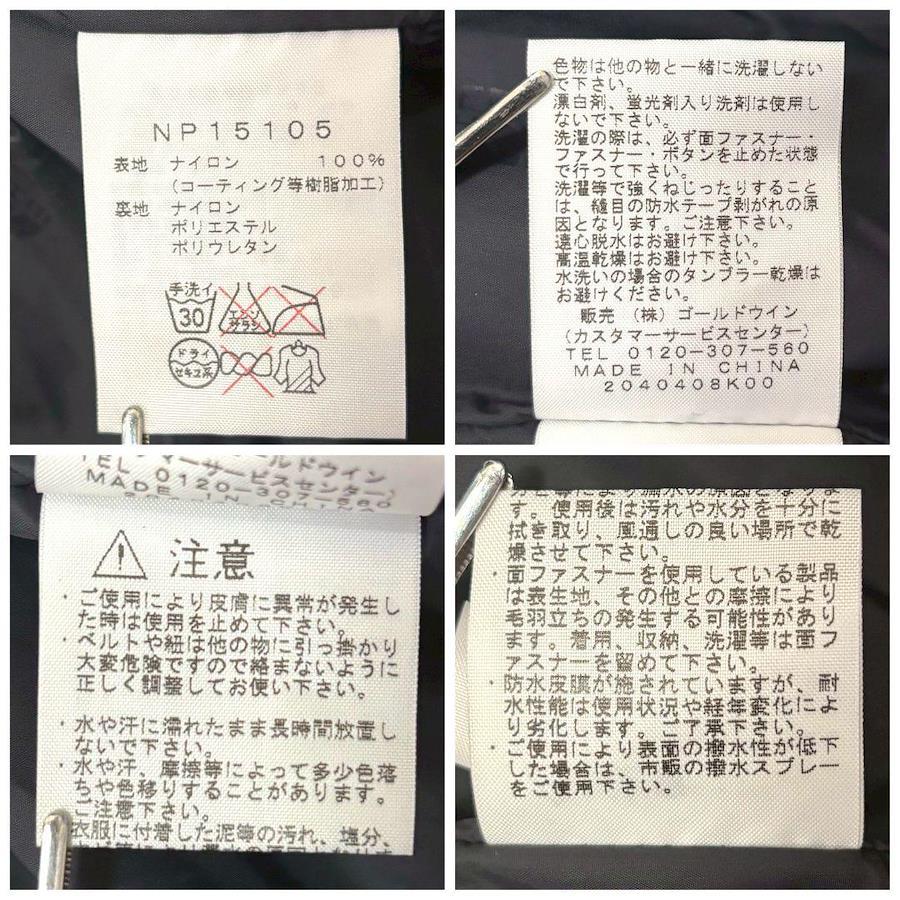 NP15105
表地 ナイロン 100%
(コーティング等樹脂加工)
裏地 ナイロン
ポリエステル
ポリウレタン
手洗イ
30
エンソ
サラシ
ドライ
セキユ系
色物は他の物と一緒に洗濯しない
で下さい。
漂白剤、蛍光剤入り洗剤は使用し
ないで下さい。
洗濯の際は、必ず面ファスナー・
ファスナー・ボタンを止めた状態
で行って下さい。
洗濯等で強くねじったりすること
は、縫目の防水テープ剥がれの原
因となります。ご注意下さい。
遠心脱水はお避け下さい。
高温乾燥はお避け下さい。
水洗いの場合のタンブラー乾燥は
お避けください。
販売 (株) ゴールドウイン
(カスタマーサービスセンター)
TEL 0120-307-560
MADE IN CHINA
2040408K00
ールドウイン
マーサービスセンター)
TEL 0120-307-560
MADE IN
注意
・ご使用により皮膚に異常が発生し
た時は使用を止めて下さい。
・ベルトや紐は他の物に引っ掛かり
大変危険ですので絡まないように
正しく調整してお使い下さい。
・水や汗に濡れたまま長時間放置し
ないで下さい。
・水や汗、摩擦等によって多少色落
ちや色移りすることがあります。
ご注意下さい。
衣服に付着した泥等の汚れ、塩分、
す。使用後は汚れや水分を十分に
拭き取り、風通しの良い場所で乾
燥させて下さい。
・面ファスナーを使用している製品
は表生地、その他との摩擦により
毛羽立ちの発生する可能性があり
ます。着用、収納、洗濯等は面フ
ァスナーを留めて下さい。
・防水皮膜が施されていますが、耐
水性能は使用状況や経年変化によ
り劣化します。ご了承下さい。
・ご使用により表面の撥水性が低下
した場合は、市販の撥水スプレー
をご使用下さい。